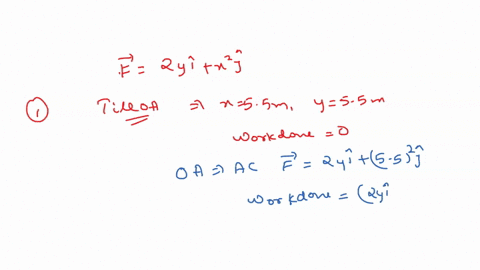 F⃗ = 2yî + x²ĵ
① Till OA ⇒ x=5.5m, y=5.5m
workdone = 0
OA ⇒ AC F⃗ = 2yî + (5.5)²ĵ
workdone = (2yî